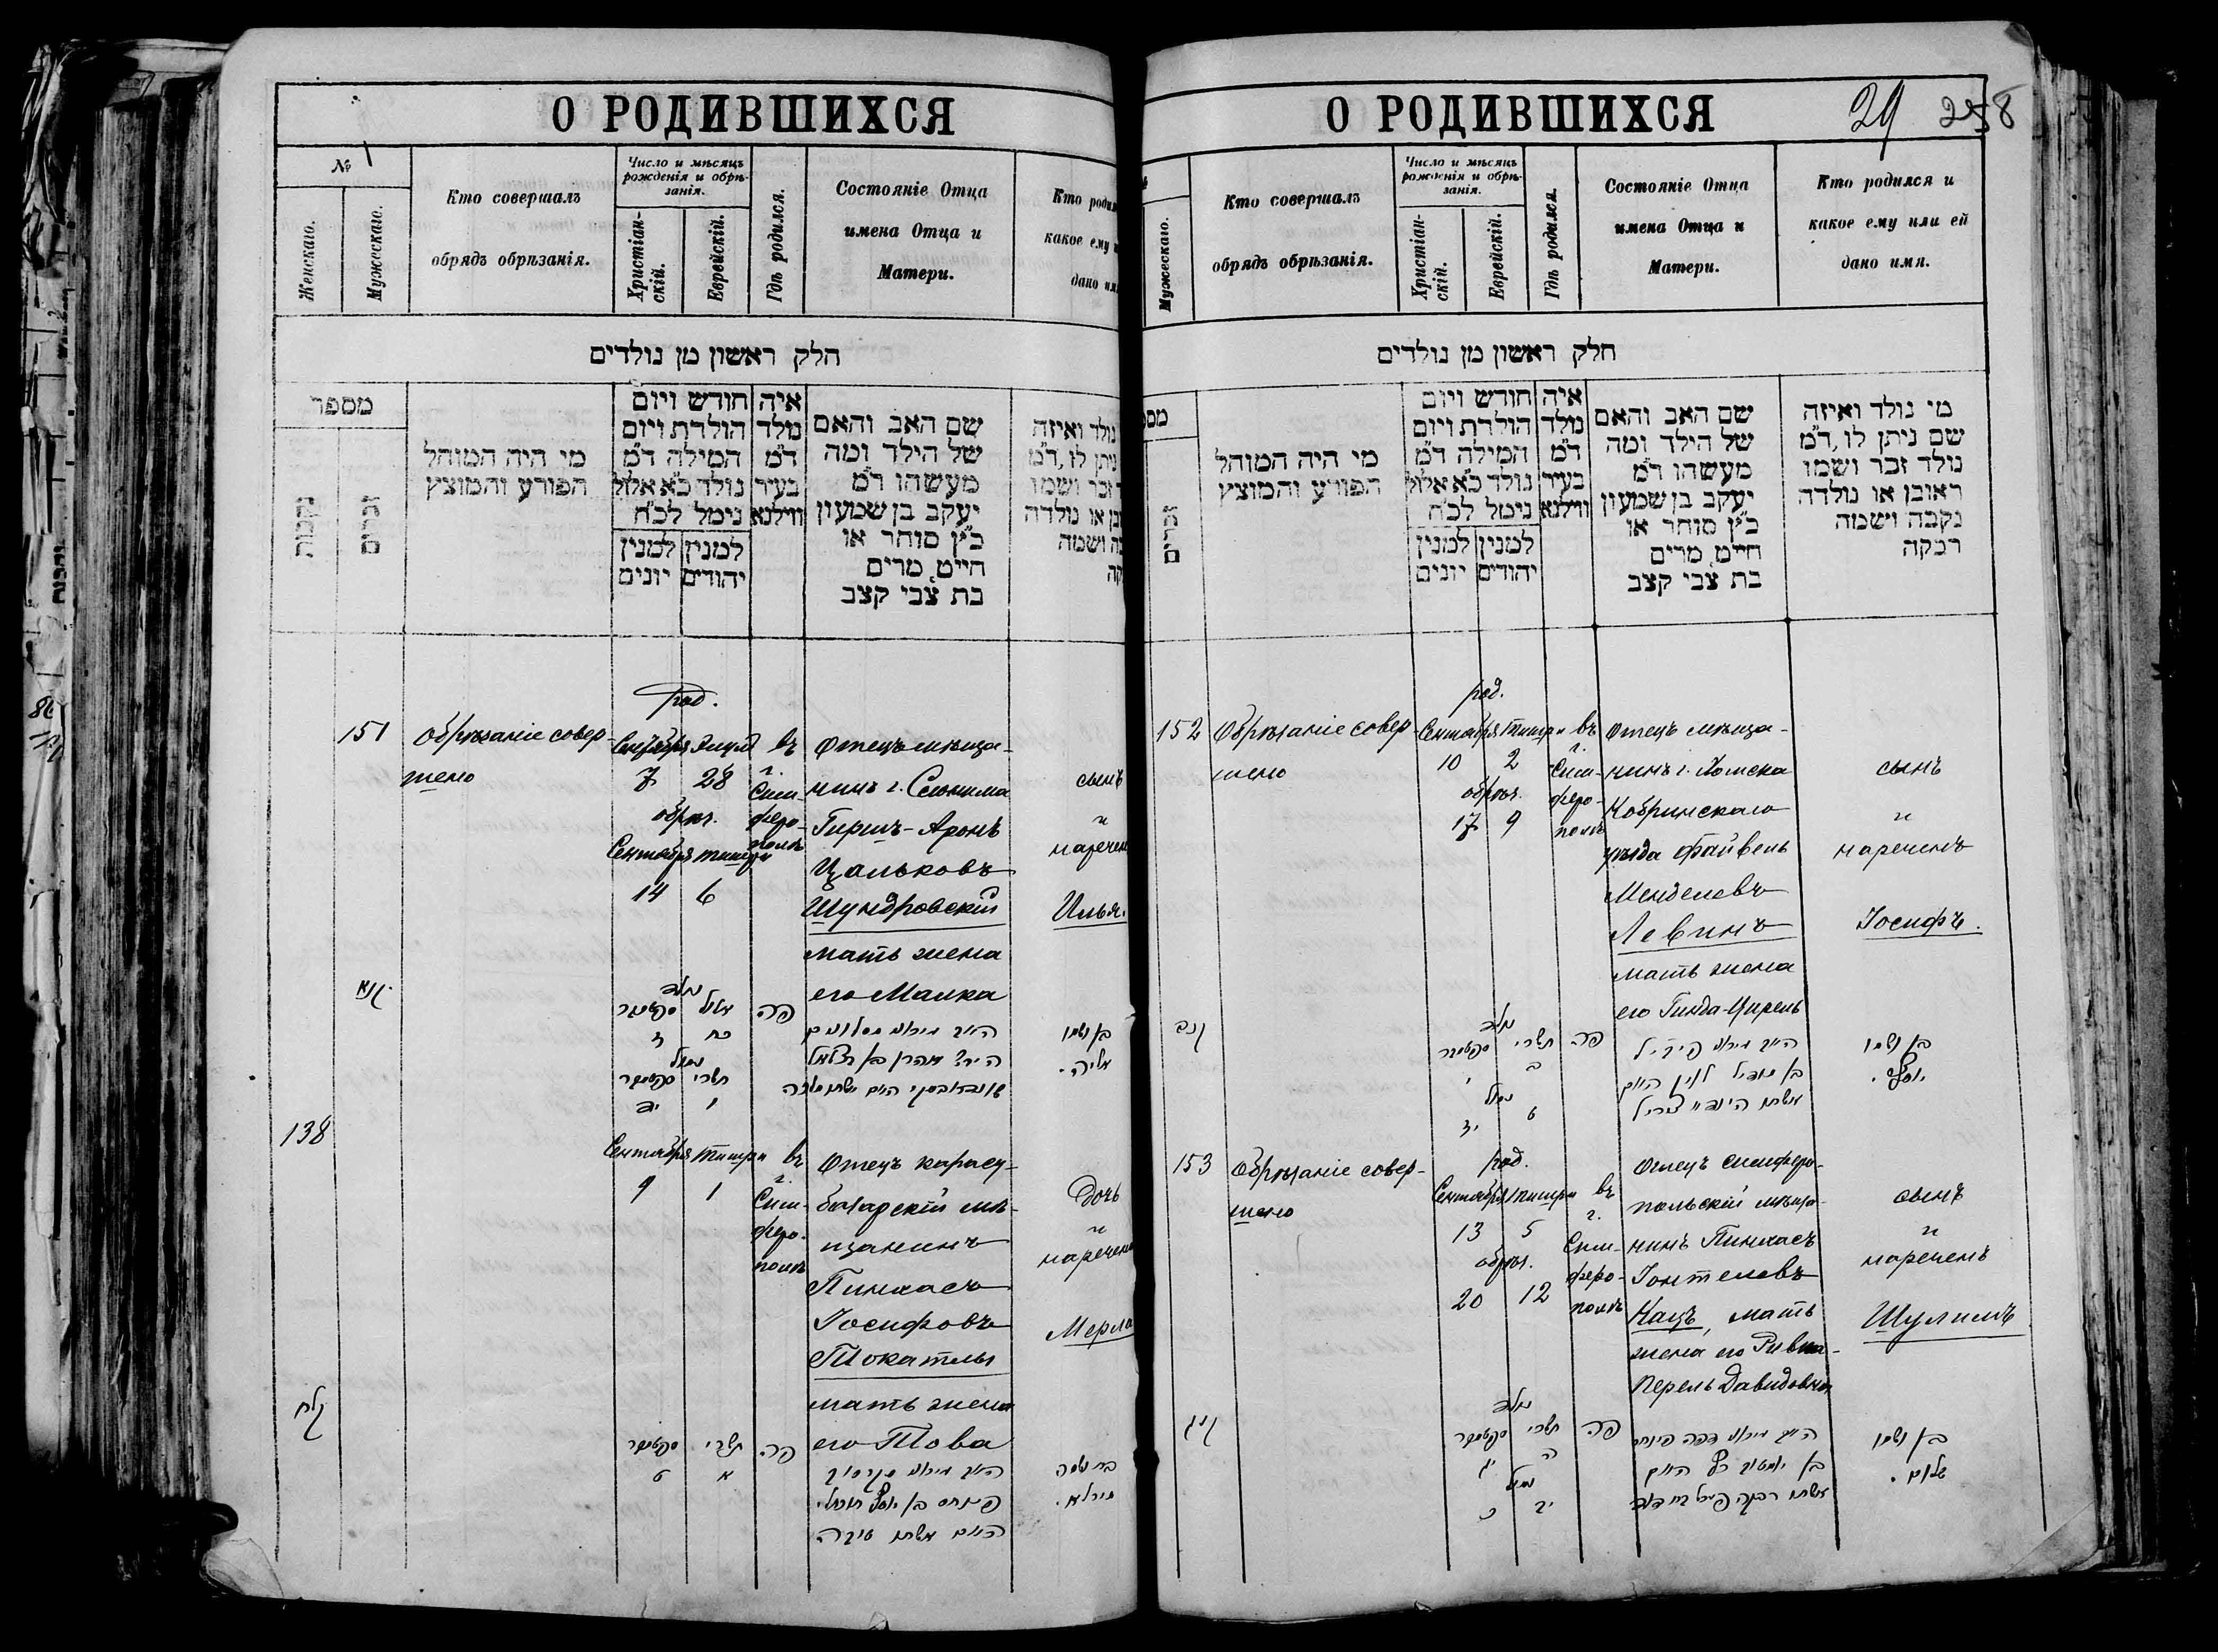 О РОДИВШИХСЯ
№
Женскаго.
Мужескаго.
Кто совершалъ
обрядъ обрѣзанія.
Число и мѣсяцъ
рожденія и обрѣ-
занія.
Христіан-
скій.
Еврейскій.
Гдѣ родился.
Состояніе Отца
имена Отца и
Матери.
Кто роди
какое ему
дано им
חלק ראשון מן נולדים
מספר
נקבות
זכרים
מי היה המוהל
הפורע והמוצץ
חודש ויום
הולדת ויום
המילה ד״מ
נולד כ״א אלול
נימל לכ״ח
למנין יהודים
למנין יונים
איה
נולד
ד״מ
בעיר
ווילנא
שם האב והאם
של הילד ומה
מעשהו ד״מ
יעקב בן שמעון
כ״ץ סוחר או
חייט, מרים
בת צבי קצב
נולד ואיזה
ניתן לו, ד״מ
זכר ושמו
או נולדה
ושמה
151
Обрѣзаніе совер-
шено
род.
Сентября Элулъ
7 28
обрѣз.
Сентября тишри
14 6
въ
г.
Сим-
феро-
полѣ
Отецъ мѣща-
нинъ г. Слонима
Гиршъ-Аронъ
Цальковъ
Шундровскій
мать жена
его Малка
сынъ
и
наречен
Илья.
קנא
נולד
אלול ספטמבר
כח ז
נימול
תשרי ספטמבר
ו יד
פה
בן ושמו
אליה.
138
Сентября тишри
9 1
въ
г.
Сим-
феро-
полѣ
Отецъ карасу-
базарскій мѣ-
щанинъ
Пинхасъ
Іосифовъ
Токатлы
мать жена
его Това
Дочь
и
наречена
Мерла
קלח
תשרי ספטמבר
א ט
פה
פינחס בן יוסף
היום אשתו טובה
בת ושמה
מירלא.
О РОДИВШИХСЯ
29 258
Мужескаго.
Кто совершалъ
обрядъ обрѣзанія.
Число и мѣсяцъ
рожденія и обрѣ-
занія.
Христіан-
скій.
Еврейскій.
Гдѣ родился.
Состояніе Отца
имена Отца и
Матери.
Кто родился и
какое ему или ей
дано имя.
חלק ראשון מן נולדים
זכרים
מי היה המוהל
הפורע והמוצץ
חודש ויום
הולדת ויום
המילה ד״מ
נולד כ״א אלול
נימל לכ״ח
למנין יהודים
למנין יונים
איה
נולד
ד״מ
בעיר
ווילנא
שם האב והאם
של הילד ומה
מעשהו ד״מ
יעקב בן שמעון
כ״ץ סוחר או
חייט, מרים
בת צבי קצב
מי נולד ואיזה
שם ניתן לו, ד״מ
נולד זכר ושמו
ראובן או נולדה
נקבה ושמה
רבקה
152
Обрѣзаніе совер-
шено
род.
Сентября Тишри
10 2
обрѣз.
17 9
въ
г.
Сим-
феро-
полѣ
Отецъ мѣща-
нинъ г. Хомска
Кобринскаго
уѣзда Файвель
Менделевъ
Левинъ
мать жена
его Гинда-Цирель
сынъ
и
нареченъ
Іосифъ.
קנב
נולד
תשרי ספטמבר
ב י
נימול
ט יז
פה
בן ושמו
יוסף.
153
Обрѣзаніе совер-
шено
род.
Сентября тишри
13 5
обрѣз.
20 12
въ
г.
Сим-
феро-
полѣ
Отецъ симферо-
польскій мѣща-
нинъ Пинхасъ
Іонтелевъ
Кацъ, мать
жена его Ривка-
Перель Давидовна
сынъ
и
нареченъ
Шулимъ
קנג
נולד
תשרי ספטמבר
ה יג
נימול
יב כ
פה
בן ושמו
שלום.